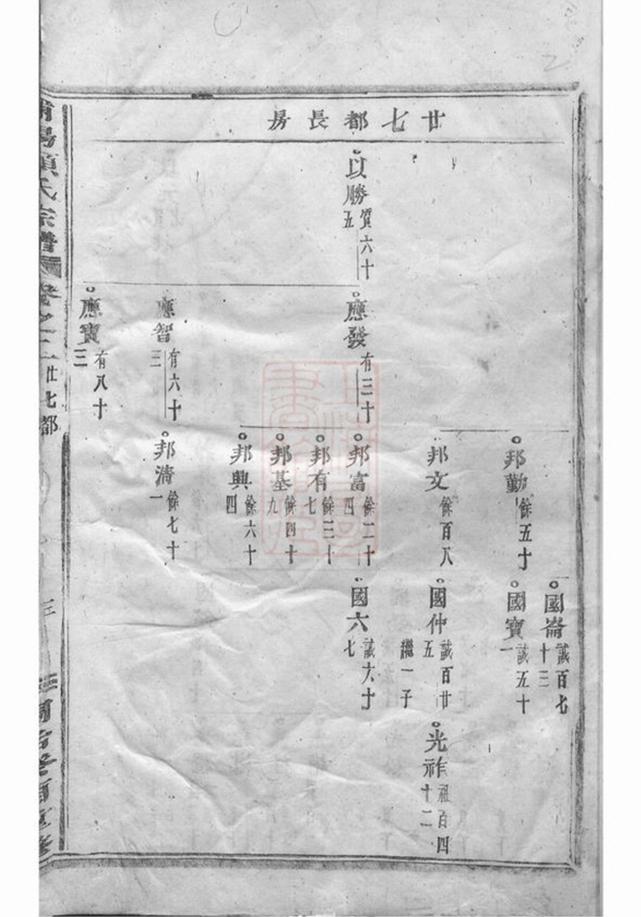 廿七都長房
以勝 質六十五
應發 有三十
應智 有六十三
應寶 有八十三
邦勤 餘五十
邦文 餘百八
邦富 餘二十四
邦有 餘三十七
邦基 餘四十九
邦興 餘六十四
邦清 餘七十一
國崙 誠百七十三
國寶 誠五十一
國仲 誠百廿五
繼一子
國六 誠六十七
光祚 祖百四十二
項氏宗譜
卷之二
廿七都
三